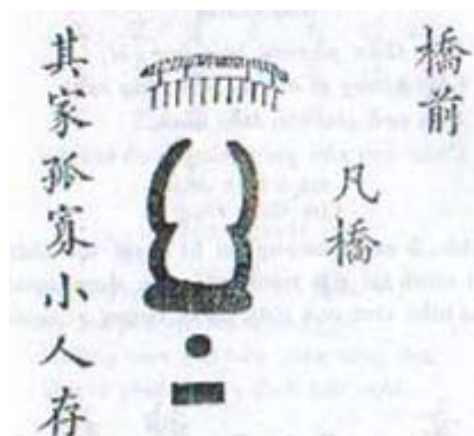 橋前
凡橋
其家孤寡小人存